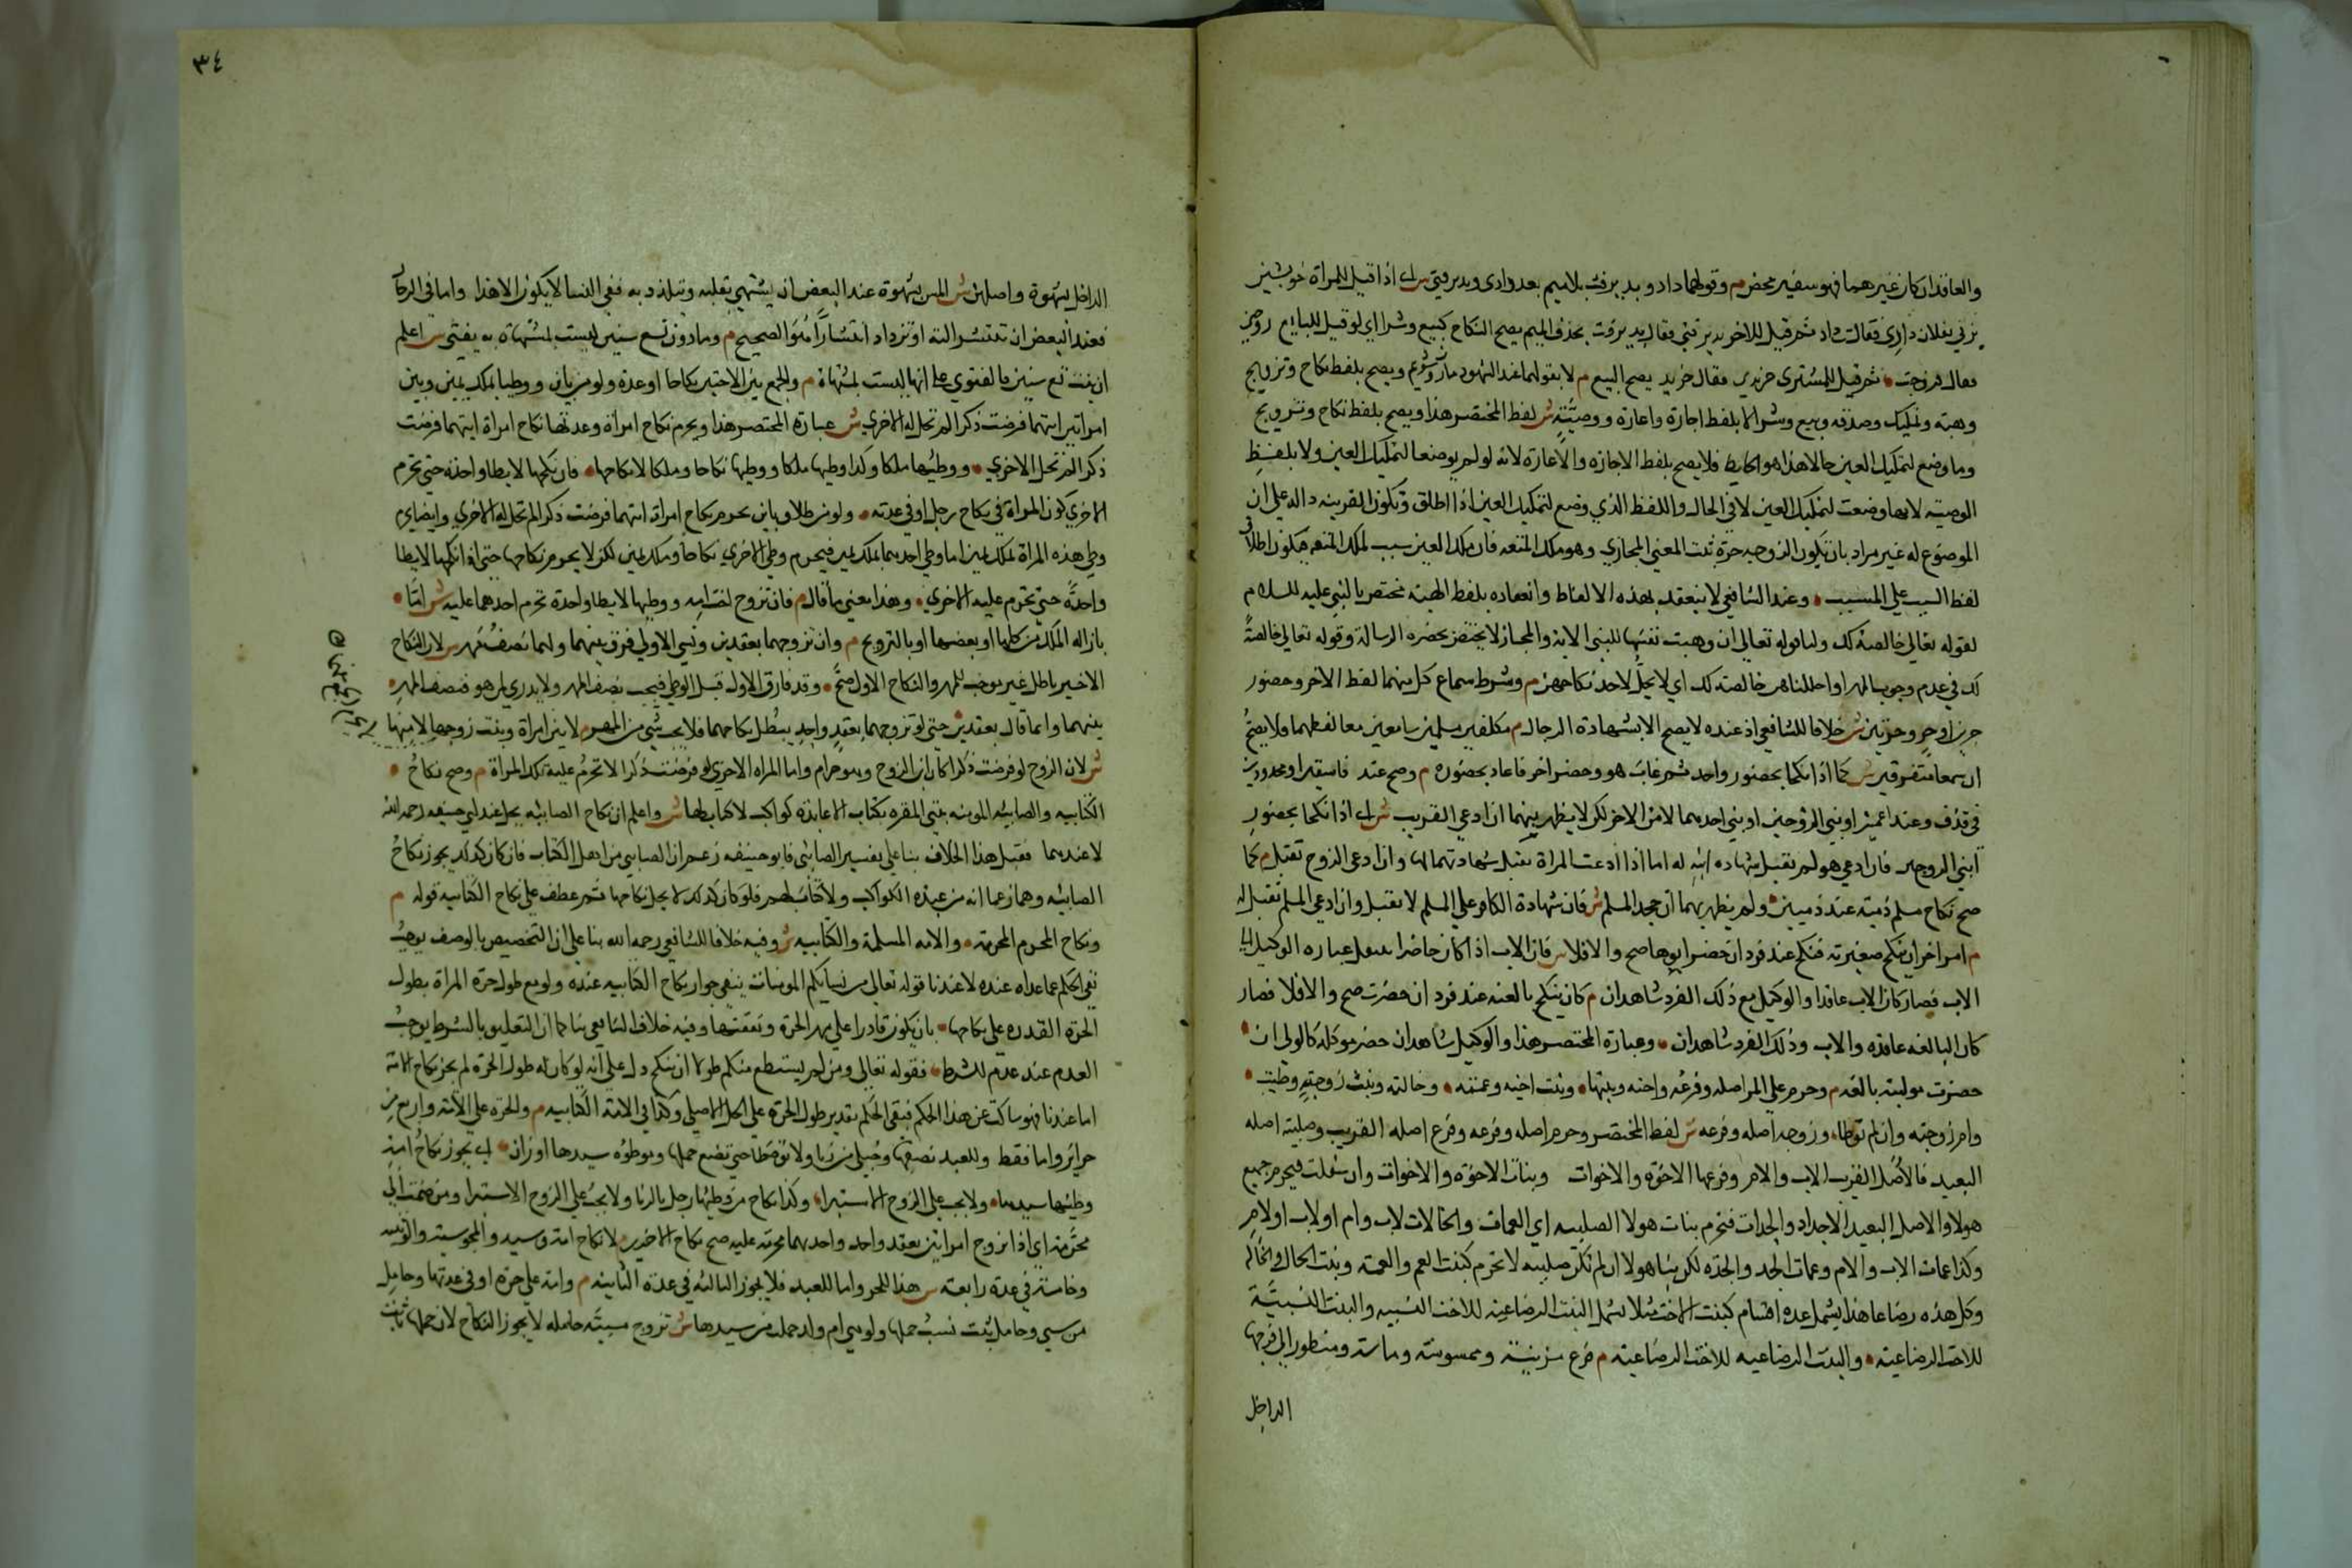 والعاقد ان كان غيرهما فهو سفير محض م وقولهما داد وپذيرفت بلا ميم بعد دادى وپذيرفتى ش اى اذا قيل للمراة خويشتن
بزنى بفلان دادى فقالت داد ثم قيل للاخر پذيرفتى فقال پذيرفت بحذف الميم يصح النكاح كبيع وشرا اى لو قيل للبايع
فقال فروخت ثم قيل للمشترى خريدى فقال خريد يصح البيع م لا بقولهما عند الشهود مازن وشويم ويصح بلفظ نكاح وتزويج
وهبة وتمليك وصدقه وبيع وشرا لا بلفظ اجارة واعارة ووصيّة ش لفظ المختصر هذا ويصح بلفظ نكاح وتزويج
وما وضع لتمليك العين حالا هذا هو الضابط فلا يصح بلفظ الاجاره والاعارة لانه لم يوضعا لتمليك العين ولا بلفظ
الوصية لانها وضعت لتمليك العين لا فى الحال واللفظ الذي وضع لتمليك العين اذا اطلق وتكون القرينه داله على ان
الموضوع له غير مراد بان تكون الزوجه حرة ثبت المعني المجازي وهو ملك المتعه فان ملك العين سبب لملك المتعه فيكون اطلاق
لفظ السبب علي المسبب وعند الشافعي لا ينعقد بهذه الالفاظ وانعقاده بلفظ الهبة مختص بالنبي عليه السلام
لقوله تعالي خالصة لك ولنا قوله تعالي ان وهبت نفسها للنبى الاية والمجاز لا يختص بحضره الرسالة وقوله تعالي خالصةً
لك في عدم وجوب المهر او احللنا هن خالصة لك اي لا تحلّ لاحد نكاحهن م وشرط سماع كل منهما لفظ الاخر وحضور
حرين او حرٍ وحرتين ش خلافا للشافعي اذ عنده لا يصح الا بشهادة الرجال م مكلفين مسلمين سامعين معا لفظهما فلا يصحُّ
ان سمعا متفرقين ش كما اذا نكحا بحضور واحد ثم غاب هو وحضر اخر فاعاد بحضوره م وصح عند فاسقين او محدودين
فى قذف وعند اعميين او بني الزوجين او بني احدهما لا من الاخر لكن لا يظهر بهما ان ادعي القريب ش اى اذا نكحا بحضور
ابني الزوجين فان ادعي هو لم يقبل شهادة ابنه له اما اذا ادعت المراة تقبل شهادتهما لها وان ادعى الزوج تقبل م كما
صح نكاح مسلم ذمية عند ذميين ولم يظهر بهما ان جحد المسلم ش فان شهادة الكافر علي المسلم لا تقبل وان ادعي المسلم تقبل له
م امر اخر ان ينكح صغيرته فنكح عند فرد ان حضر ابوها صح والا فلا ش فان الاب اذا كان حاضرا ينتقل عبارة الوكيل الى
الاب فصار كان الاب عاقدا والوكيل مع ذلك الفرد شاهدان م كاب ينكح بالغته عند فرد ان حضرت صح والا فلا فصار
كان البالغه عاقدة والاب وذلك الفرد شاهدان وعبارة المختصر هذا والوكيل شاهد ان حضر موكله كالولى ان
حضرت موليته بالغه م وحرم على المرا اصله وفرعه واخته وبنتها وبنت اخيه وعمته وخالته وبنت زوجته وطيت
وامّ زوجته وان لم توطا وزوجه اصله وفرعه ش لفظ المختصر وحرم اصله وفرعه وفرع اصله القريب وصلبية اصله
البعيد فالاصل القريب الاب والام وفرعها الاخوة والاخوات وبنات الاخوة والاخوات وان سفلت فيحرم جميع
هولا والاصل البعيد الاجداد والجدات فتحرم بنات هولا الصلبيه اي العمات والخالات لاب وام او لاب او لام
وكذا عمات الاب والام وعمات الجد والجدة لكن بنات هولا ان لم تكن صلبيه لا تحرم كبنت العم والعمة وبنت الخال والخالة
وكل هذه رضاعا هذا يشمل عدة اقسام كبنت الاخت مثلا تشمل البنت الرضاعية للاخت النسبيه والبنت النسبيّة
للاخت الرضاعية والبنت الرضاعيه للاخت الرضاعية م فرع مزنيته وممسوسته وماسته ومنظور الي فرجها
الداخل
٣٤
الداخل بشهوة واصلهن ش المس بشهوة عند البعض ان يشتهي بقلبه ويتلذذ به ففي النسا لا يكون الا هذا واما في الرجال
فعند البعض ان تنتشر الته او تزداد انتشارًا هو الصحيح م وما دون تسع سنين ليست بمشتهاة به يفتى ش اعلم
ان بنت تسع سنين فالفتوي على انها ليست بمشتهاة م والجمع بين الاختين نكاحا او عدة ولو من باين ووطيا بملك يمين وبين
امراتين ايتهما فرضت ذكرا لم تحل له الاخري ش عبارة المختصر هذا ويحرم نكاح امراة وعدتها نكاح امراة ايتهما فرضت
ذكرا لم تحل الاخري ووطيها ملكا وكذا وطيها ملكا ووطيها نكاحا وملكا لا نكاحها فان نكحها لا يطا واحدة حتى تحرم
الاخري كون المراة في نكاح رجل او في عدته ولو من طلاق باين يحرم نكاح امراة ايتهما فرضت ذكرا لم تحل له الاخري وايضا يحرم
وطي هذه المراة بملك يمين اما وطي احديهما بملك يمين فيحرم وطي الاخري نكاحا وملك يمين لكن لا يحرم نكاحها حتى اذا نكحها لا يطا
واحدةً حتي تحرم عليه الاخري وهذا معني ما قال م فان تزوج اخت امة ووطيها لا يطا واحدة حتى تحرم احدهما عليه ش امّا
بازاله الملك من كلها او بعضها او بالتزويج م وان تزوجهما بعقدين ونسي الاولي فرق بينهما ولهما نصف مهر ش لان النكاح
الاخير باطل غير موجب للمهر والنكاح الاول صحّ وقد فارق الاوله قبل الوطي فيجب نصف المهر ولا يدري لمن هو فينصف المهر
بينهما وانما قال بعقدين حتي لو تزوجهما بعقدٍ واحدٍ يبطل نكاحهما فلا يجب شيي من المهر م لا بين امراة وبنت زوجها لا منها
ش لان الزوج لو فرضت ذكرا كان ابن الزوج وهو حرام واما المراه الاخري لو فرضت ذكرا لا تحرم عليه تلك المراة م وصح نكاح
الكتابيه والصابية المومنه بنبي المقره بكتاب لا عابدة كواكب لا كتاب لها ش واعلم ان نكاح الصابيه يحل عند ابي حنيفه رحمه الله
لا عندهما فقيل هذا الخلاف بنا علي تفسير الصابئي فابو حنيفه زعم ان الصابي من اهل الكتاب فان كان كذلك يجوز نكاح
الصابئه وهما زعما انه من عبدة الكواكب ولا كتاب لهم فلو كان كذلك لا يحل نكاحها ثم عطف علي نكاح الكتابيه قوله م
ونكاح المحرم المحرمة والامه المسلمة والكتابيه ش وفيه خلاف الشافعي رحمه الله بنا علي ان التخصيص بالوصف يوجب
نفي الحكم عما عداه عنده لا عندنا قوله تعالي من نسايكم المومنات ينفي جواز نكاح الكتابيه عنده ولو مع طول حرة المراة بطول
الحرة القدره علي نكاحها بان يكون قادرا علي مهر الحرة ونفقتها وفيه خلاف الشافعي بنا علي ان التعليق بالشرط يوجب
العدم عند عدم الشرط فقوله تعالي ومن لم يستطع منكم طولا ان ينكح دل علي انه لو كان له طول الحرة لم يجز نكاح الامة
اما عندنا فهو ساكت عن هذا الحكم فبقي الحكم بتقدير طول الحرة علي الحل الاصلي وكذا في الامة الكتابيه م والحرة علي الامة واربع من
حراير واما فقط وللعبد نصفها وحبلي من زنا ولا توطا حتي تضع حملها وموطوءة سيدها او زان اى يجوز نكاح امةٍ
وطيها سيدها ولا يجب علي الزوج الاستبرا وكذا نكاح من وطيها رجل بالزنا ولا يجب علي الزوج الاستبرا ومن ضمت الي
محرّمة اي اذا تزوج امراتين بعقد واحد واحدهما محرمة عليه صح نكاح الاخري لا نكاح امته وسيده والمجوسية والوثنيه
وخامسة في عدة رابعة ش هذا للحر واما للعبد فلا يجوز الثالثه في عدة الثانيه م وامة علي حرة او في عدتها وحامل
من سبي وحامل ثبت نسب حملها ولو هي ام ولد حملت من سيدها ش تزوج مسبيّه حامله لا يجوز النكاح لان حملها ثابت